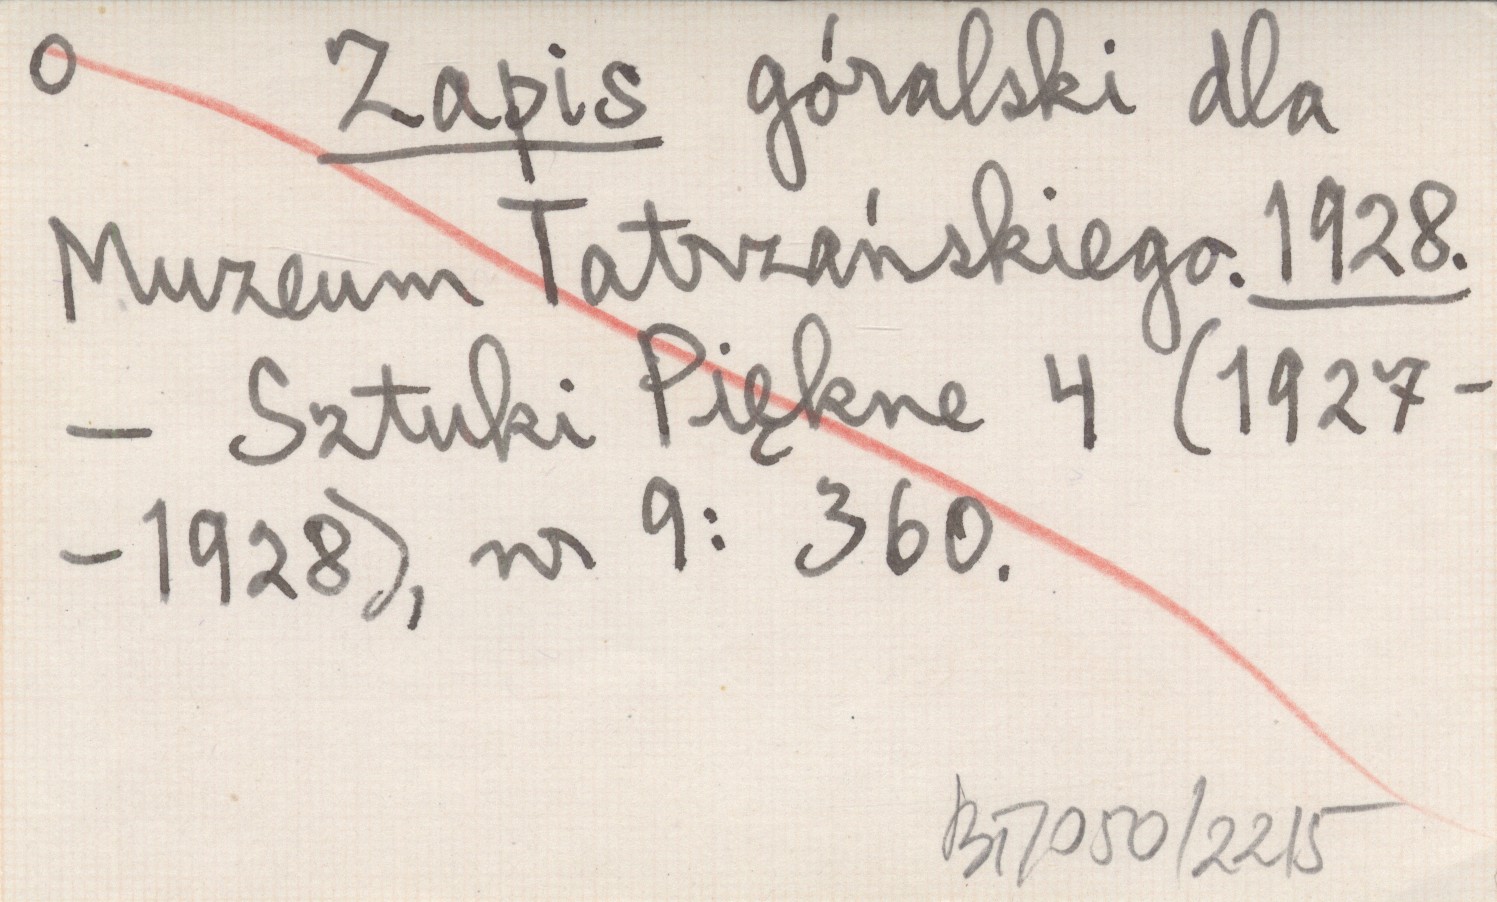 O Zapis góralski dla
Muzeum Tatrzańskiego. 1928.
– Sztuki Piękne 4 (1927-
-1928), nr 9: 360.